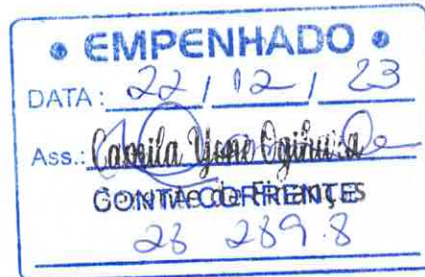 • EMPENHADO •
DATA: 22 / 12 / 23
Ass.: Camila Yone
CONTA CORRENTE
28 289.8